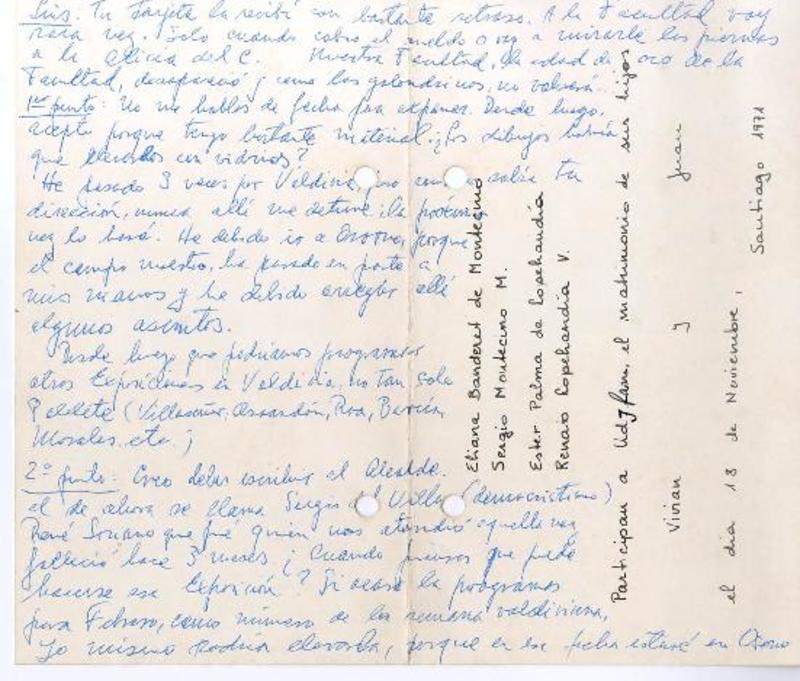 Luis. Tu tarjeta la recibí con bastante retraso. A la Facultad voy
rara vez. Solo cuando cobro el sueldo o voy a mirarle las piernas
a la Alicia del C. Nuestra Facultad, la edad de oro de la
Facultad, desapareció y como las golondrinas, no volverá.
1er punto: No me hablas de fecha para exponer. Desde luego,
acepto porque tengo bastante material. ¿Los dibujos habría
que llevarlos con vidrios?
He pasado 3 veces por Valdivia, pero sabía tu
dirección, nunca allí me detuve; la próxima
vez lo haré. He debido ir a Osorno, porque
el campo nuestro, ha pasado en parte a
mis manos y he debido arreglar allí
algunos asuntos.
Desde luego que podríamos programar
otras Exposiciones en Valdivia, no tan solo
(Villaseñor, Ossandón, Roa,
Morales, etc.)
2º punto: Creo debes escribir al Alcalde.
el de ahora se llama Sergio del (democristiano)
René Soriano que fué quien nos atendió aquella vez
falleció hace 3 meses ¿Cuando piensas que pueda
hacerse esa Exposición? Si acaso la programas
para Febrero, como número de la semana valdiviana,
Yo mismo podría llevarla, porque en esa fecha estaré en Osorno
Eliana Banderet de Montecino
Sergio Montecino M.
Ester Palma de Lopehandía
Renato Lopehandía V.
Participan a Ud y fam. el matrimonio de sus hijos
Vivian y Juan
el día 18 de Noviembre,
Santiago 1971